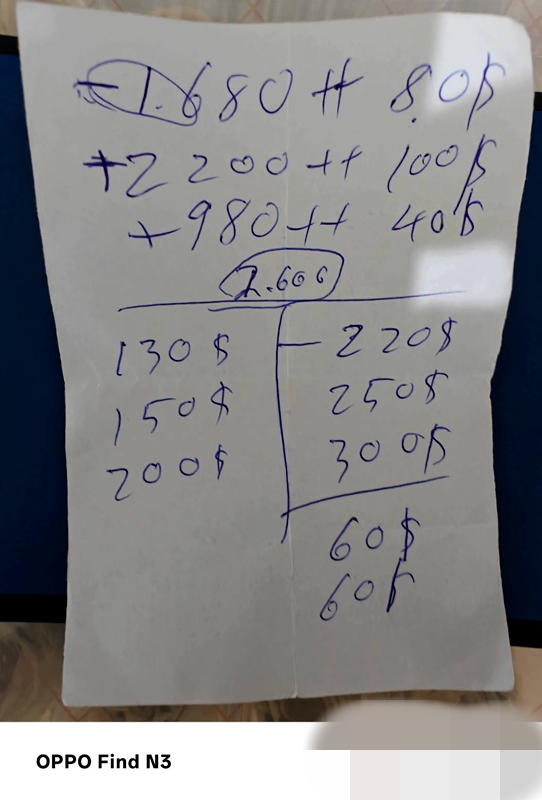 -1.680 ++ 80$
+2200 ++ 100$
+980 ++ 40$
2.600
130$ - 220$
150$ 250$
200$ 300$
60$
60$
OPPO Find N3